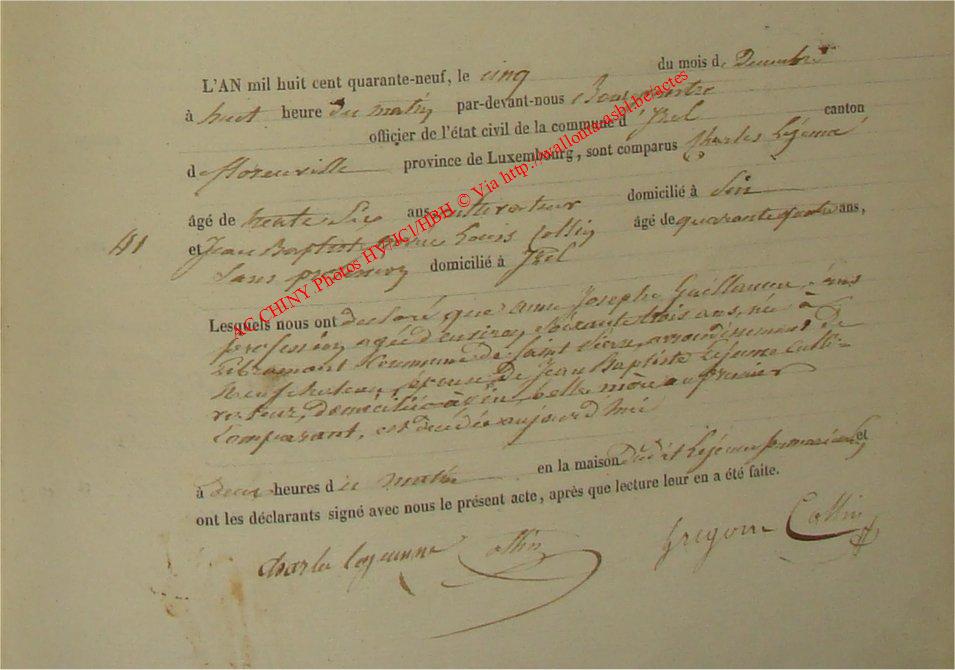 L'AN mil huit cent quarante-neuf, le cinq du mois d Decembre
à huit heure du matin par-devant-nous Bourgmestre
officier de l'état civil de la commune d'Izel canton
d florenville province de Luxembourg, sont comparus Charles Lejeune
âgé de trente Six ans cultivateur domicilié à
41
et Jean Baptist Louis Collin âgé de quarante quatre ans,
Sans profession domicilié à Izel
Lesquels nous ont déclaré que anne Josephe Guillaume, sans
profession agée d'environ soixante trois ans, née à
Libramont Commune de Saint Pierre arrondissement de
Neufchateau, épouse de Jean Baptiste Lejeune culti-
vateur, domiciliée à belle mère au premier
Comparant, est décédée aujourd'hui
à deux heures du matin en la maison dudit Lejeune son mari et
ont les déclarants signé avec nous le présent acte, après que lecture leur en a été faite.
Charles lejeunne Collin Gregoire Collin
AC CHINY Photos HYJC1/HBH © Via http://wallonia.asbl.be/actes